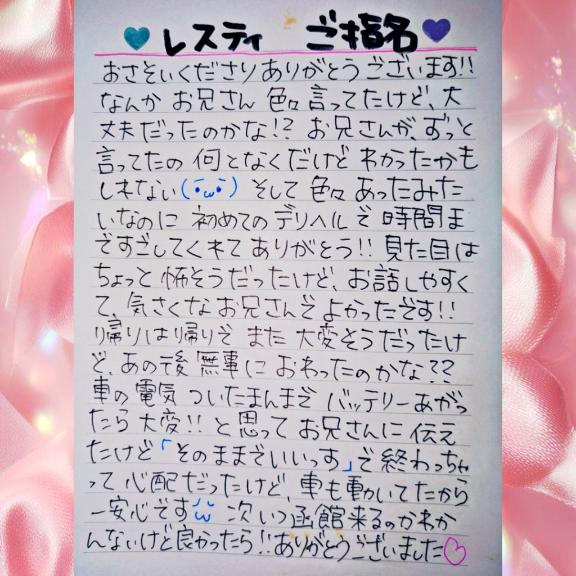 レスティ ご指名
おさそいくださりありがとうございます!!
なんか お兄さん 色々言ってたけど、大
丈夫だったのかな!? お兄さんが、ずっと
言ってたの 何となくだけど わかったかも
しれない(･ω･) そして 色々 あったみた
いなのに 初めてのデリヘルで 時間ま
ですごしてくれて ありがとう!! 見た目は
ちょっと 怖そうだったけど、お話しやすく
て、気さくな お兄さんで よかったです!!
帰りは帰りで また 大変そうだったけ
ど、あの後 無事に おわったのかな??
車の 電気 ついたまんまで バッテリーあがっ
たら 大変!! と 思って お兄さんに 伝え
たけど「そのままでいいっす」で 終わっちゃ
って 心配だったけど、車も動いてたから
一安心です 次いつ函館来るのかわか
んないけど良かったら!! ありがとうございました♡